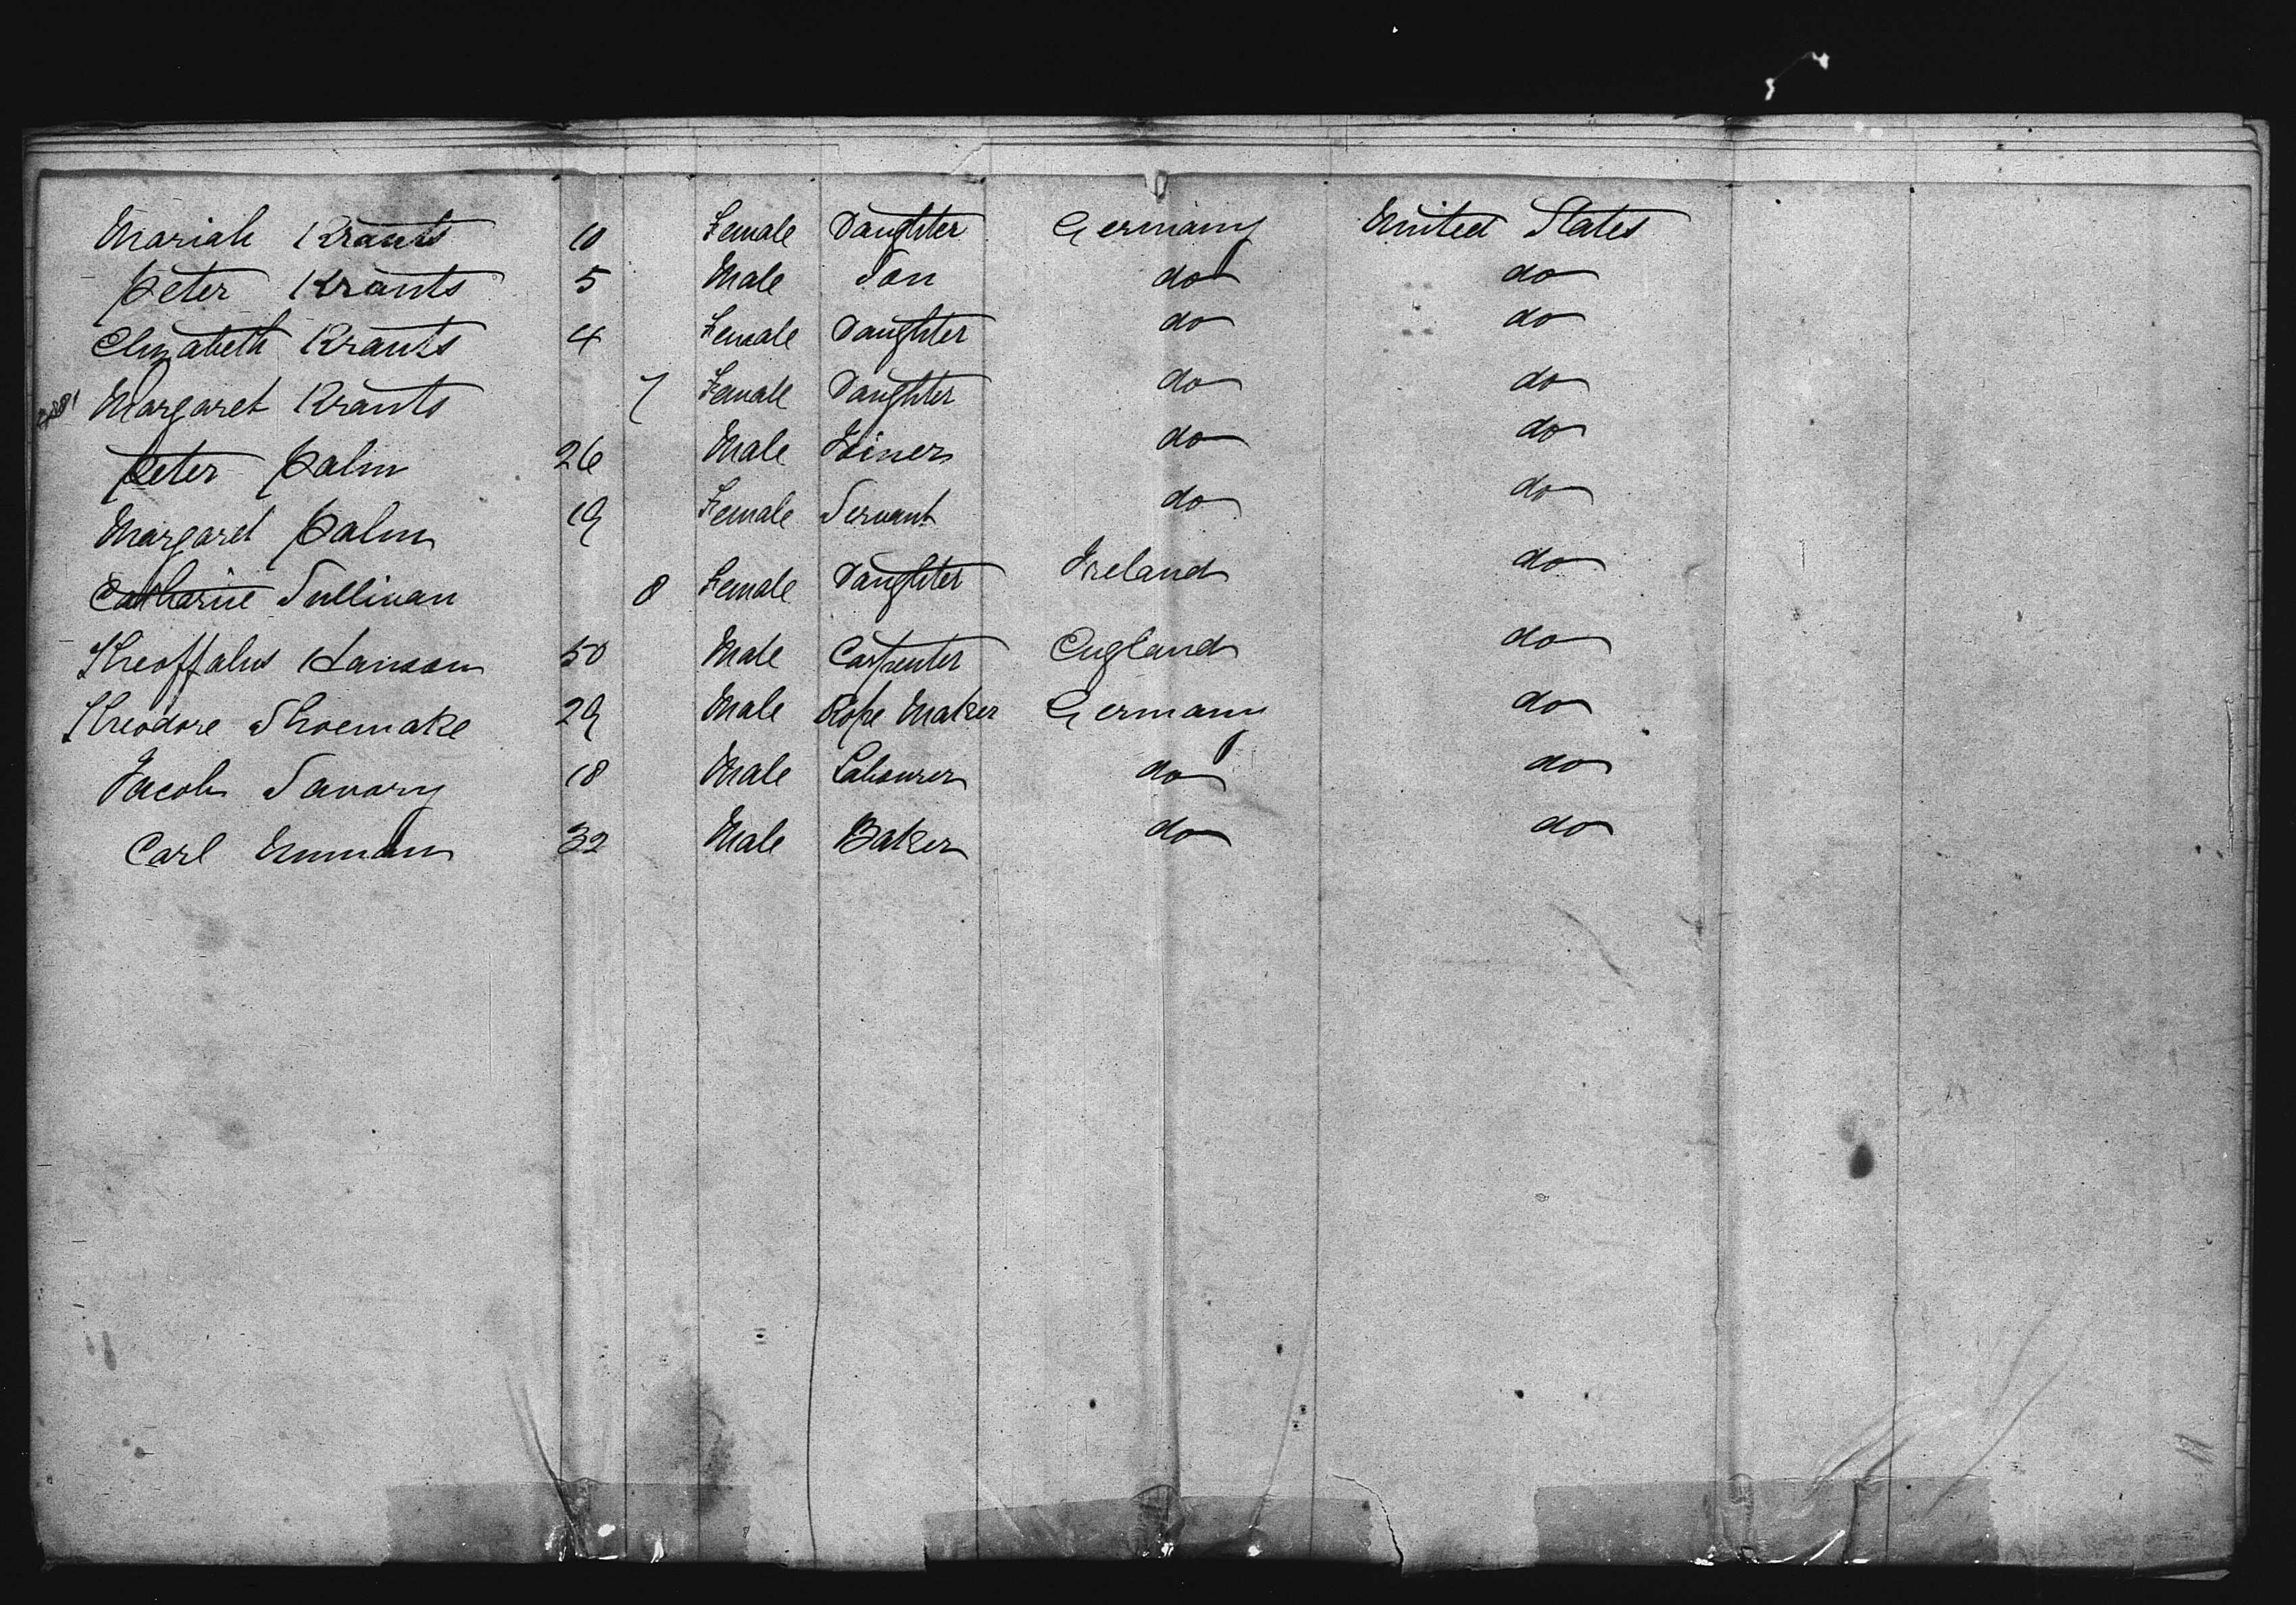 Mariah Krants 10 Female Daughter Germany United States
Peter Krants 5 Male Son do do
Elizabeth Krants 4 Female Daughter do do
Margaret Krants 7 Female Daughter do do
Peter Palm 26 Male Joiner do do
Margaret Palm 19 Female Servant do do
Catharine Sullivan 8 Female Daughter Ireland do
Theoffalus 50 Male Carpenter England do
Theodore Shoemake 29 Male Rope Maker Germany do
Jacob Savory 18 Male Labourer do do
Carl 32 Male Baker do do